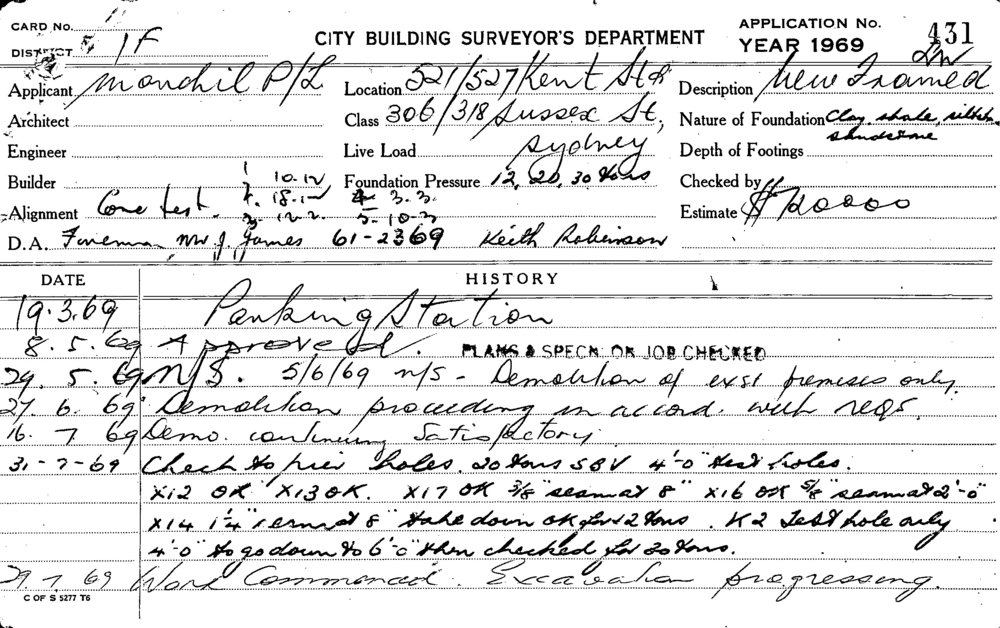 CARD No.
DISTRICT 1F
CITY BUILDING SURVEYOR'S DEPARTMENT
APPLICATION No. 431
YEAR 1969
Applicant Mondhil P/L
Location 521/527 Kent St &
Description New Framed
Architect
Class 306/318 Sussex St,
Nature of Foundation Clay shale,
sandstone
Engineer
Live Load Sydney
Depth of Footings
Builder 1 10-12
Foundation Pressure 12, 20, 30 tons
Checked by
Alignment Core test. 18-12 3.3.
3. 12-2. 5-10-3
Estimate $720000
D.A. Foreman Mr J. James 61-2369 Keith Robinson
DATE HISTORY
19.3.69 Parking Station
8.5.69 Approved. PLANS & SPECN. ON JOB CHECKED
29.5.69 N/S. 5/6/69 N/S - Demolition of exst premises only.
27.6.69 Demolition proceeding in accord. with reqs.
16.7.69 Demo. continuing Satisfactory.
31-7-69 Check to pier holes. 20 tons SBV 4'-0" test holes.
X12 OK X13 OK. X17 OK 3/8" seam at 8" X16 OK 5/8" seam at 2'-0"
X14 1¼" seam at 8" take down OK for 12 tons. K2 Test hole only
4'-0" to go down to 6'-0" then checked for 20 tons.
29.7.69 Work Commenced. Excavation progressing.
C OF S 5277 T6